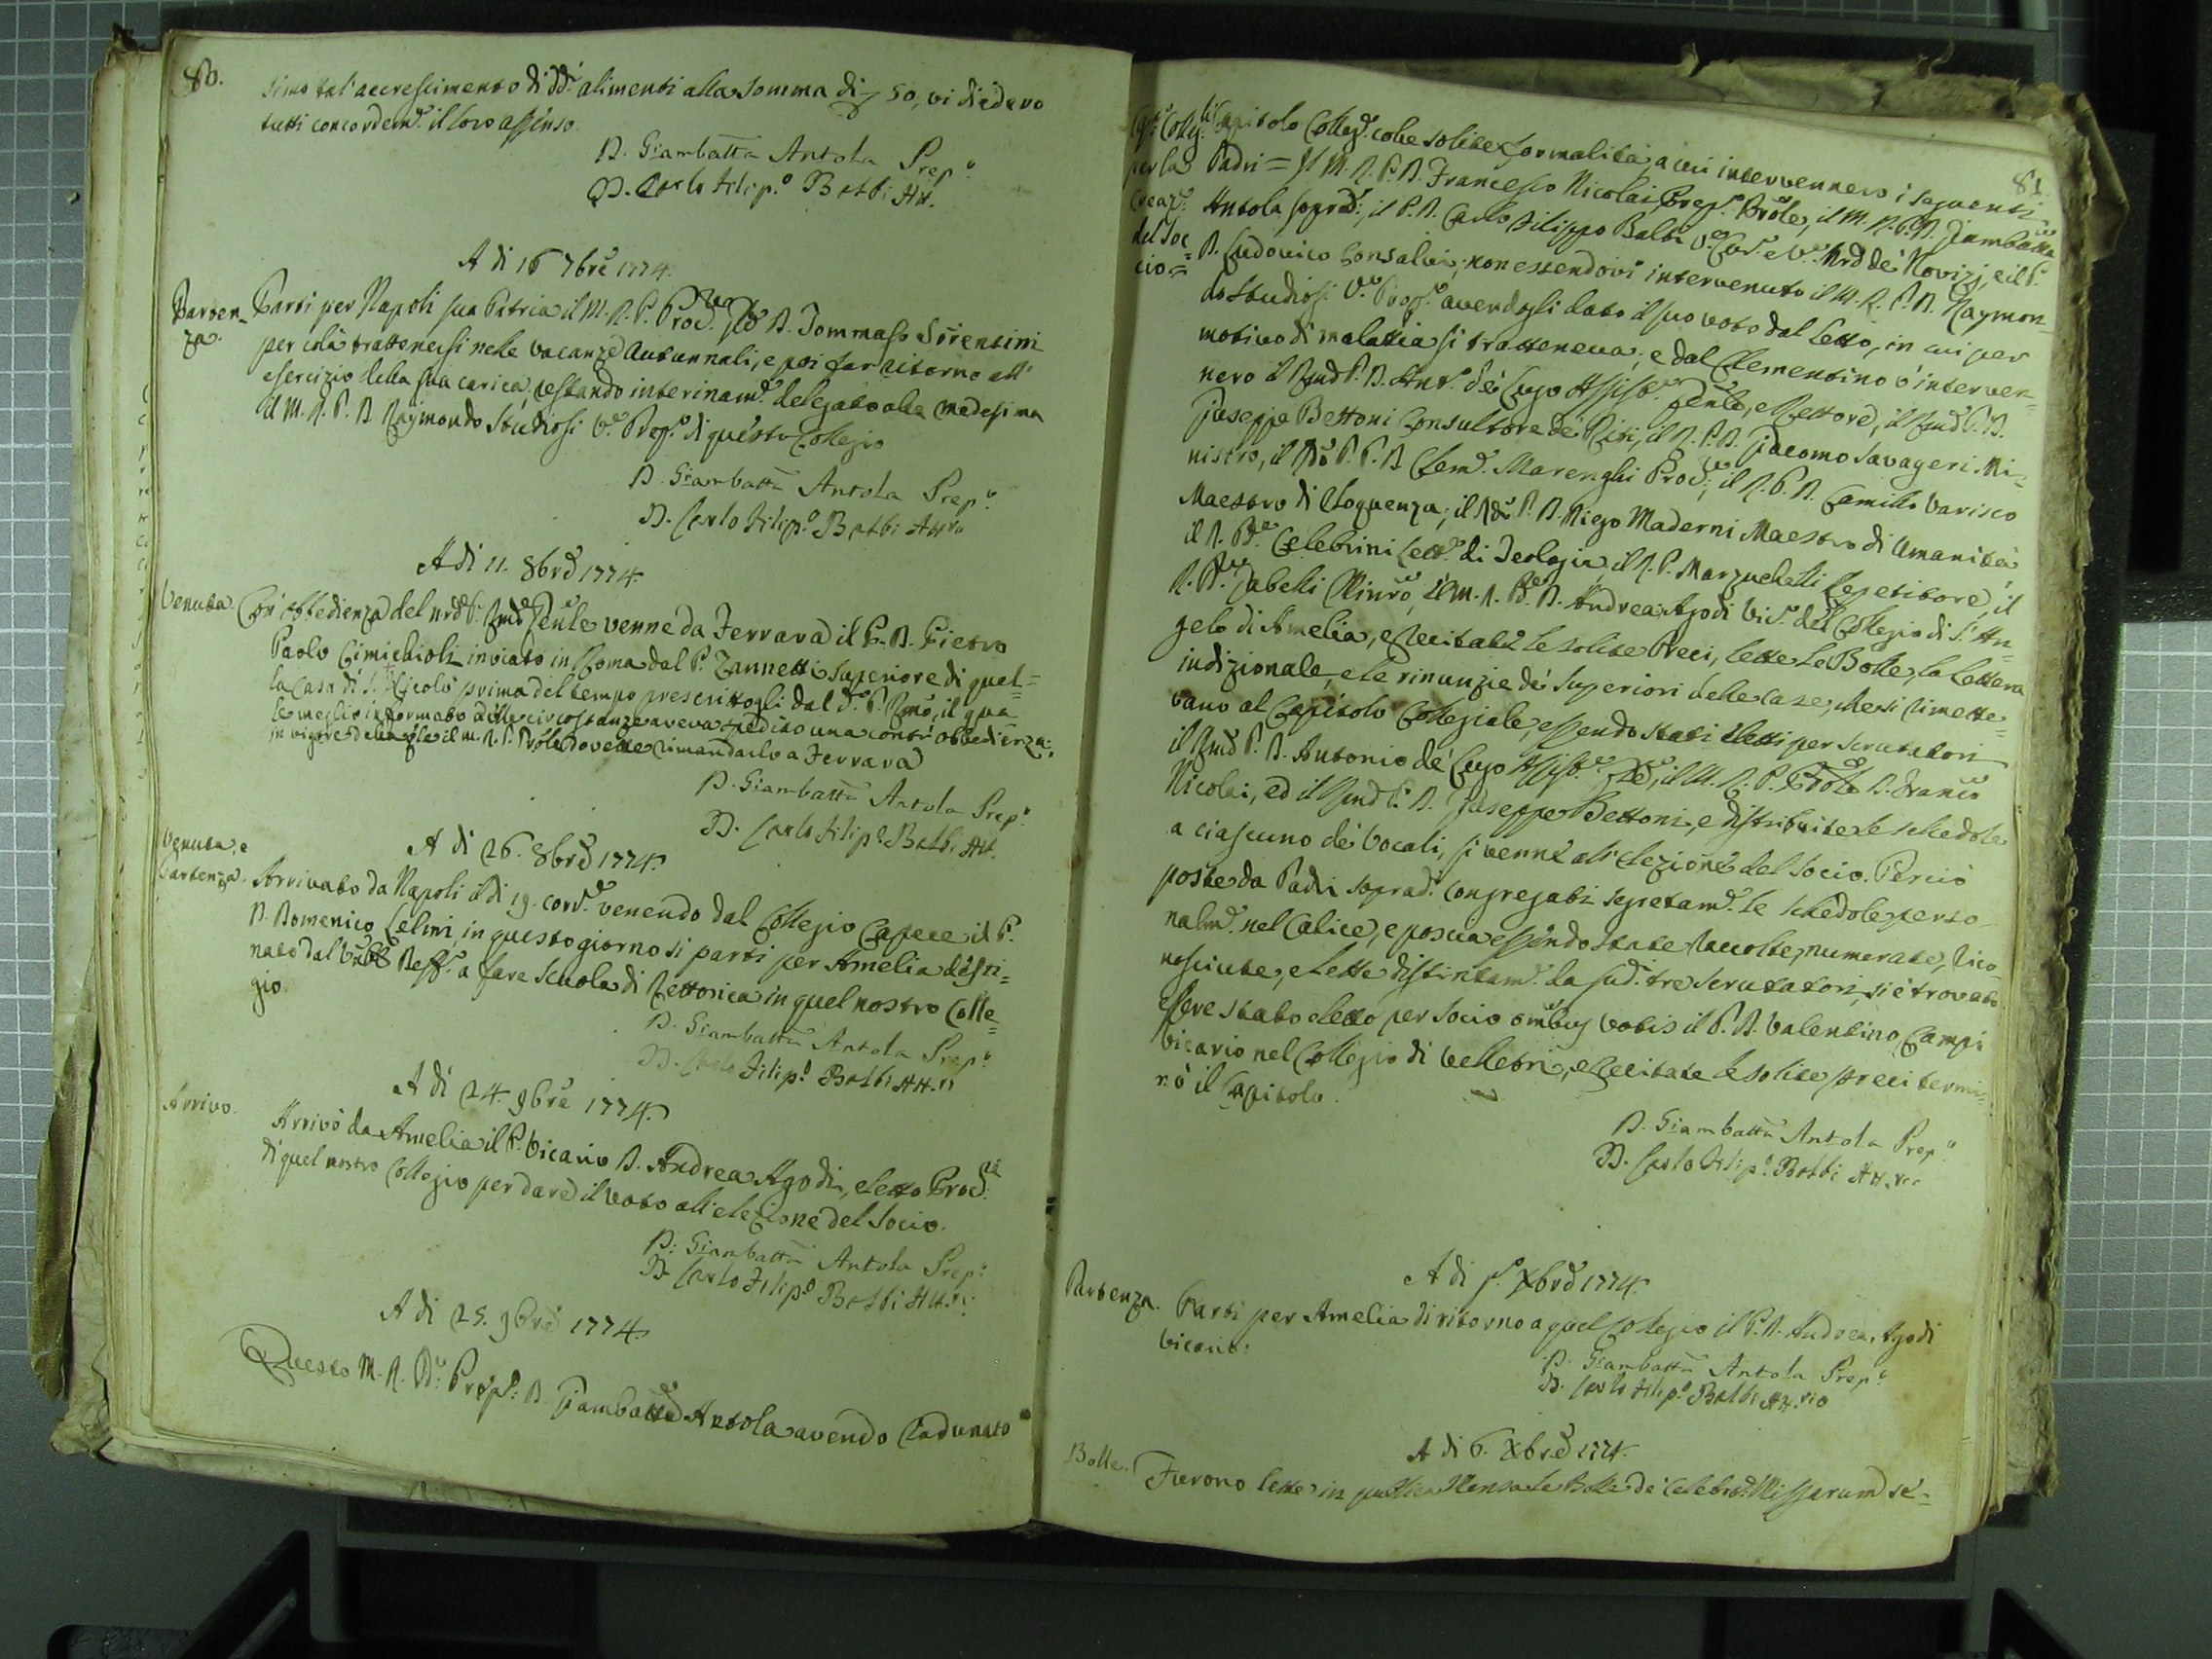 80.
simo tal' accrescimento di dd. alimenti alla somma di 50, vi diedero
tutti concordem. il loro assenso.
D. Giambatta Antola Prep.o
D. Carlo Filip.o Balbi Att.
A di 16 7bre 1774.
Parten-
za.
Partì per Napoli sua Patria il M. R. P. Proc. D. Tommaso Sorentini
per colà trattenersi nelle vacanze Autunnali, e poi far ritorno all'
esercizio della sua carica, restando interinam. delegato alla medesima
il M. R. P. D. Raymondo Studiosi V. Prep. di questo Collegio
D. Giambatta Antola Prep.o
D. Carlo Filip.o Balbi Att.rio
A di 11. 8bre 1774.
Venuta.
Con obbedienza del P. venne da Ferrara il P. D. Pietro
Paolo Cimichioli inviato in Roma dal P. Zannetti Superiore di quel=
la Casa di S. Nicolò prima del tempo prescrittogli dal d. P. Rmo, il qua=
le meglio informato delle circostanze aveva spedito una contr'obbedienza:
in vigore della qle il M. R. P. Prôle dovette rimandarlo a Ferrara
D. Giambatta Antola Prep.o
D. Carlo Filip.o Balbi Att.
Venuta, e
Partenza.
A di 26. 8bre 1774.
Arrivato da Napoli il dì 19. corr. venendo dal Collegio Capece il P.
D. Domenico Lelmi, in questo giorno si partì per Amelia desti=
nato dal a fare scuola di Rettorica in quel nostro Colle=
gio.
D. Giambatta Antola Prep.o
D. Carlo Filip.o Balbi Att.
Arrivo.
A di 24. 9bre 1774.
Arrivò da Amelia il P. Vicario D. Andrea Agodi, eletto Proc.
di quel nostro Collegio per dare il voto all'elezione del Socio.
D. Giambatta Antola Prep.o
D. Carlo Filip.o Balbi Att.
A di 25. 9bre 1774.
Questo M. R. P. Prep. D. Giambatta Antola avendo radunato
81.
per la
Creaz.
del Soc
cio =
Capitolo Colleg. colle solite formalità, a cui intervennero i seguenti
Padri = Il M. R. P. D. Francesco Nicolai Prep. Prôle, il M. R. P. D. Jambatta
Antola soprad., il P. D. Carlo Filippo Balbi V. de' Novizj, e il P.
D. Ludovico Consalvi; non essendovi intervenuto il M. R. P. D. Raymon=
do Studiosi V. Prep. avendogli dato il suo voto dal letto, in cui per
motivo di malatia si tratteneva; e dal Clementino v'interven=
nero il Rmd P. D. Ant. de' Lugo Assist. Genle, e Rettore, il Rmd P. D.
Juseppe Bettoni Consultore de' Riti, il R. P. D. Jacomo Savageri Mi=
nistro, il P. D. Clem. Marenghi Proc., il R. P. D. Camillo Varisco
Maestro di Eloquenza; il P. D. Diego Maderni Maestro di Umanità
il R. P. Celebrini Lett. di Teologia, il R. P. Marzuchelli Repetitore, il
R. P. Jabelli il M. R. P. D. Andrea Agodi Vic. del Collegio di S. An=
gelo di Amelia, e recitate le solite Preci, lette le Bolle, la lettera
indizionale, e le rinunzie de' Superiori delle Case, che si rimette=
vano al Capitolo Collegiale, essendo stati eletti per scrutatori
il Rmd P. D. Antonio de' Lugo Assist. il M. R. P. Prôle D. Franco
Nicolai, ed il Rmd P. D. Juseppe Bettoni, e distribuite le schedole
a ciascuno de' Vocali, si venne all'elezione del Socio. Perciò
poste da Padri soprad. congregati segretam. le schedole perso=
nalm. nel Calice, e poscia essendo state raccolte, numerate, rico=
nosciute, e lette distintam. da sud. tre scrutatori, si è trovato
essere stato eletto per Socio omibus votis il P. D. Valentino Campi
Vicario nel Collegio di Velletri, e recitate le solite preci termi=
nò il Capitolo.
D. Giambatta Antola Prep.o
D. Carlo Filip.o Balbi Att.rio
A di p. Xbre 1774.
Partenza.
Partì per Amelia di ritorno a quel Collegio il P. D. Andrea Agodi
Vicario:
D. Giambatta Antola Prep.o
D. Carlo Filip.o Balbi Att.rio
A di 6. Xbre 1774.
Bolle.
Furono lette in publica Mensa le Bolle de Celebr. Missarum se=